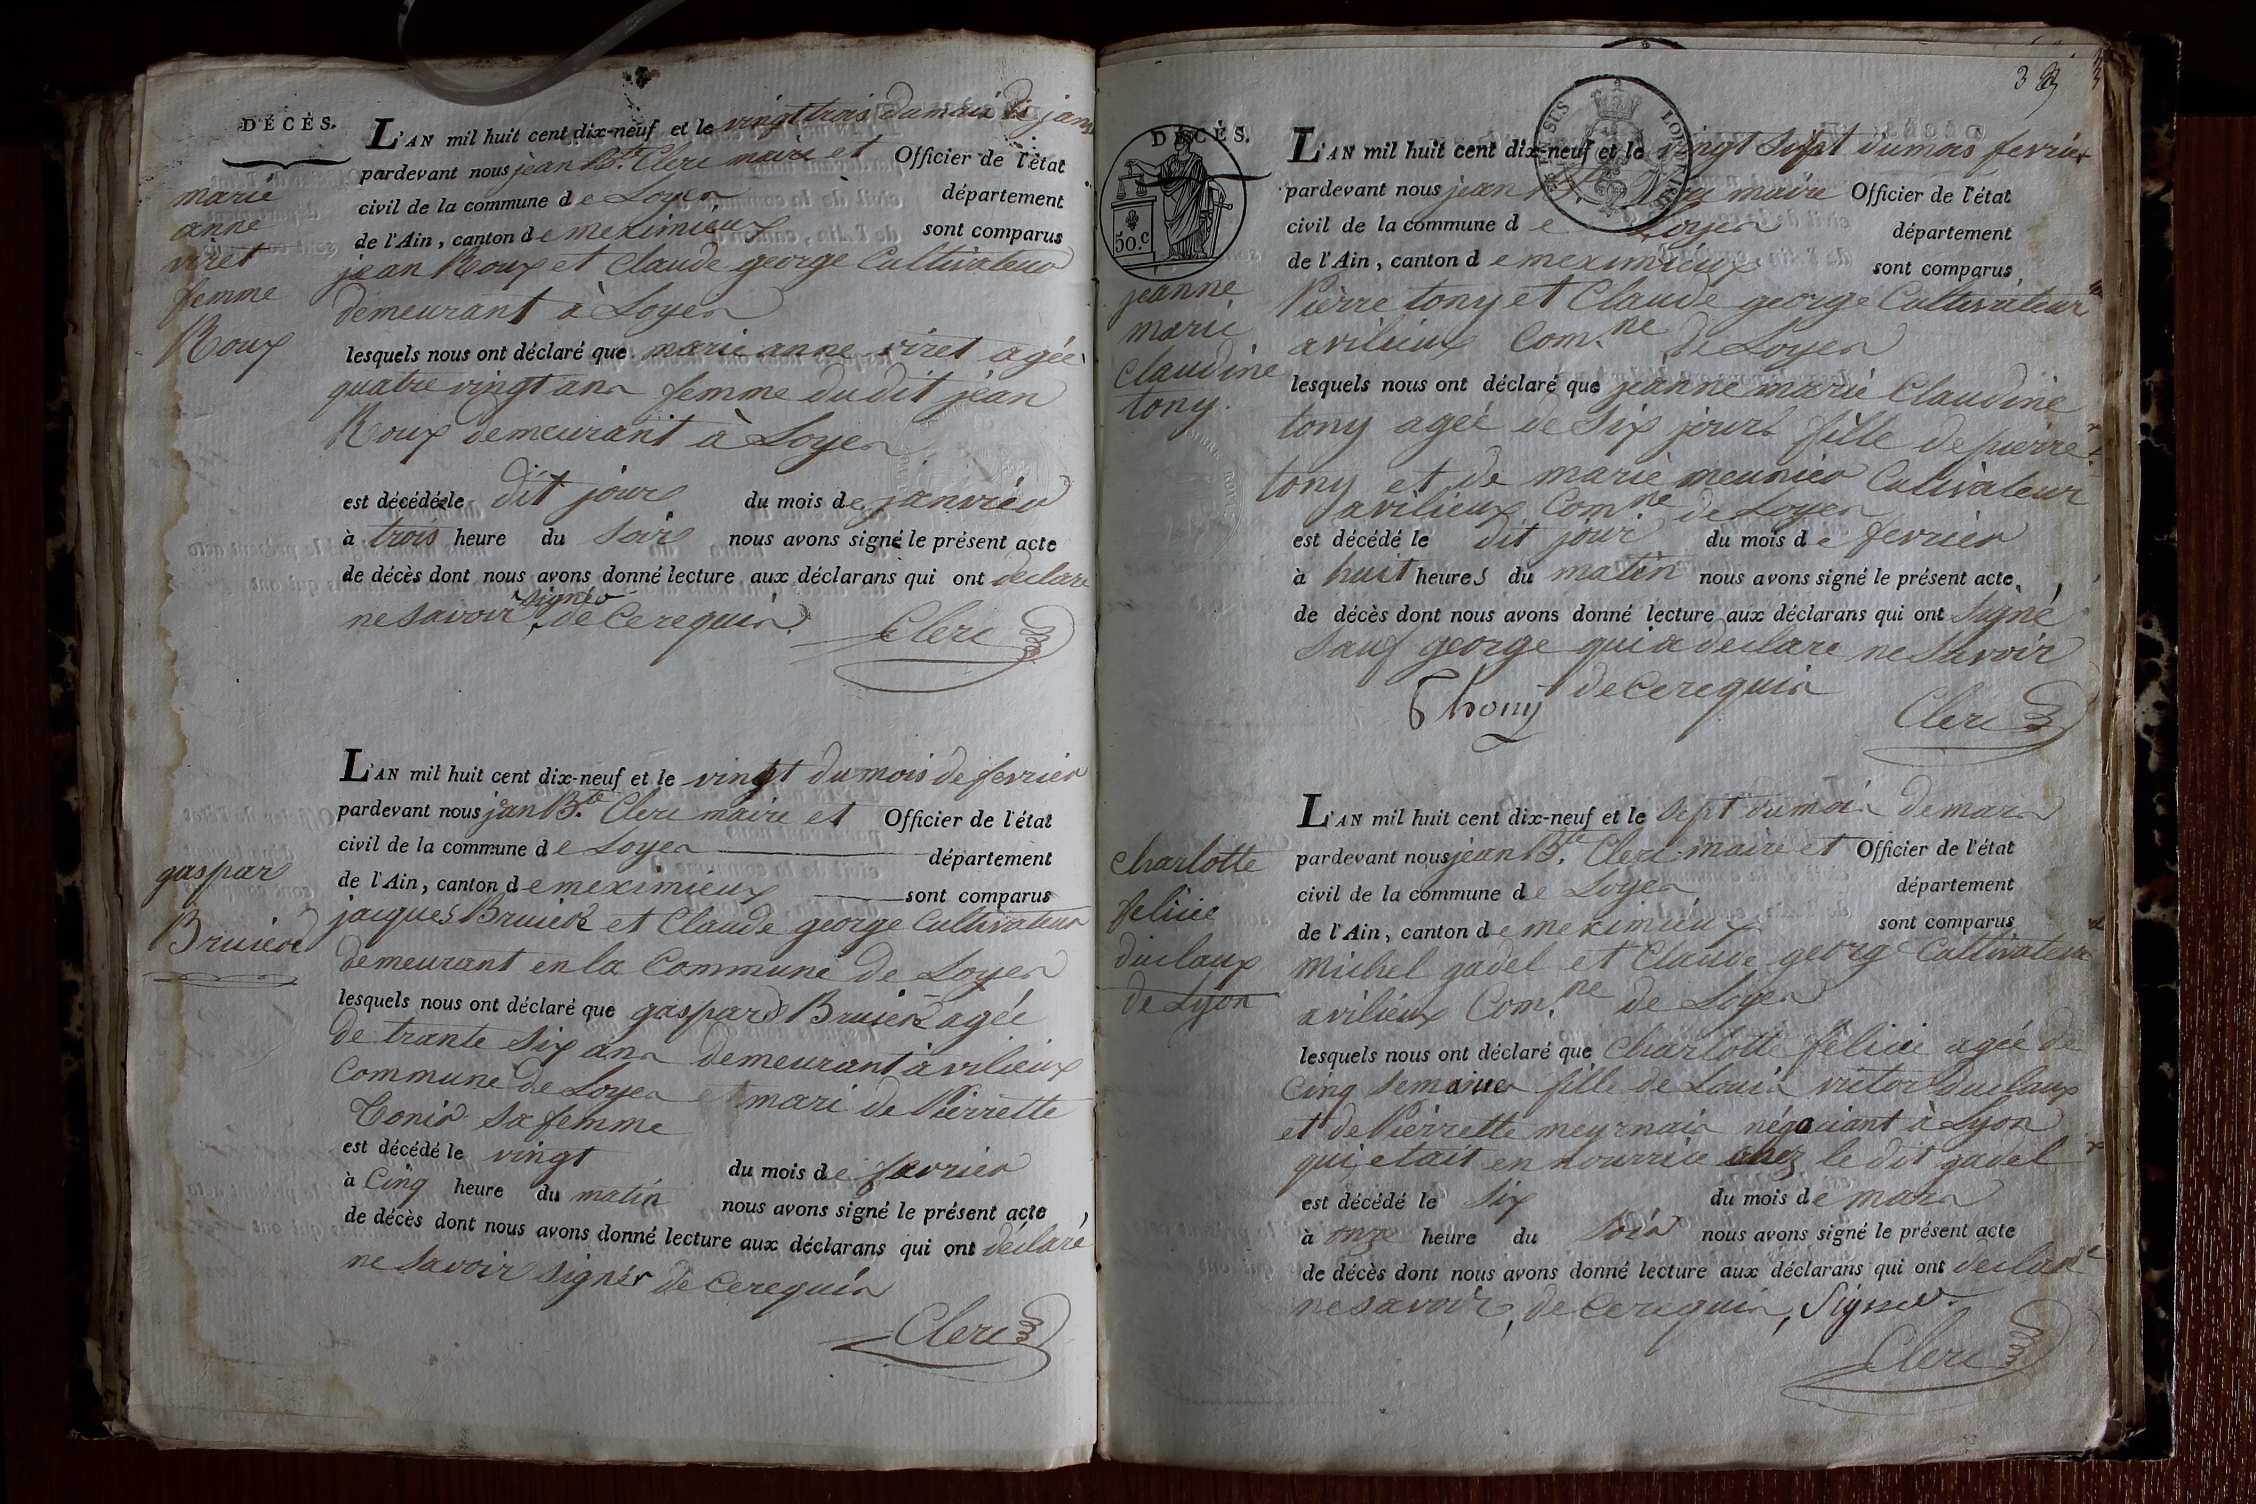 DÉCÈS.
marie
anne
viret
femme
Roux
L'AN mil huit cent dix-neuf et le vingt trois du mois de janv
pardevant nous jean Bte. Clerc maire et Officier de l'état
civil de la commune de Loyes département
de l'Ain, canton de meximieux sont comparus
jean Roux et Claude george Cultivateurs
demeurant à Loyes
lesquels nous ont déclaré que marie anne viret agée
quatre vingt ans femme du dit jean
Roux demeurant à Loyes
est décédée le dit jour du mois de janvier
à trois heure du soir nous avons signé le présent acte
de décès dont nous avons donné lecture aux déclarans qui ont declare
ne savoir signer de Ce requis. Clerc
gaspar
Bruiere
L'AN mil huit cent dix-neuf et le vingt du mois de fevrier
pardevant nous jan Bte. Clerc maire et Officier de l'état
civil de la commune de Loyes département
de l'Ain, canton de meximieux sont comparus
jacques Bruiere et Claude george Cultivateurs
demeurant en la Commune de Loyes
lesquels nous ont déclaré que gaspard Bruiere agée
de trante six ans demeurant à vilieux
Commune de Loyes et mari de Pierrette
Tonis sa femme
est décédé le vingt du mois de fevrier
à Cinq heure du matin nous avons signé le présent acte,
de décès dont nous avons donné lecture aux déclarans qui ont déclaré
ne savoir signer de Ce requis
Clerc
3
DÉCÈS.
50.c
jeanne
marie
Claudine
tony.
L'AN mil huit cent dix-neuf et le vingt sept du mois fevrier
pardevant nous jean Clerc maire Officier de l'état
civil de la commune de Loyes département
de l'Ain, canton de meximieux sont comparus
Pierre tony et Claude george Cultivateurs
a vilieux Com.ne de Loyes
lesquels nous ont déclaré que jeanne marie Claudine
tony agée de six jours fille de pierre
tony et de marie meunier Cultivateur
a vilieux Comne de Loyes
est décédé le dit jour du mois de fevrier
à huit heures du matin nous avons signé le présent acte,
de décès dont nous avons donné lecture aux déclarans qui ont signé
sauf george qui a declare ne savoir
de Ce requis
Thony Clerc
Charlotte
felicie
duclaux
de Lyon
L'AN mil huit cent dix-neuf et le sept du mois de mars
pardevant nous jean Bte. Clerc maire et Officier de l'état
civil de la commune de Loyes département
de l'Ain, canton de meximieux sont comparus
Michel gadel et Claude georg Cultivateurs
a vilieux Com.ne de Loyes
lesquels nous ont déclaré que Charlotte félicie agée de
Cinq semaines fille de Louis victor duclaux
et de Pierrette meyrnais négociant à Lyon
qui etait en nourrice chez le dit gadel
est décédé le six du mois de mars
à onze heure du soir nous avons signé le présent acte
de décès dont nous avons donné lecture aux déclarans qui ont declaré
ne savoir, de Ce requis, signer.
Clerc